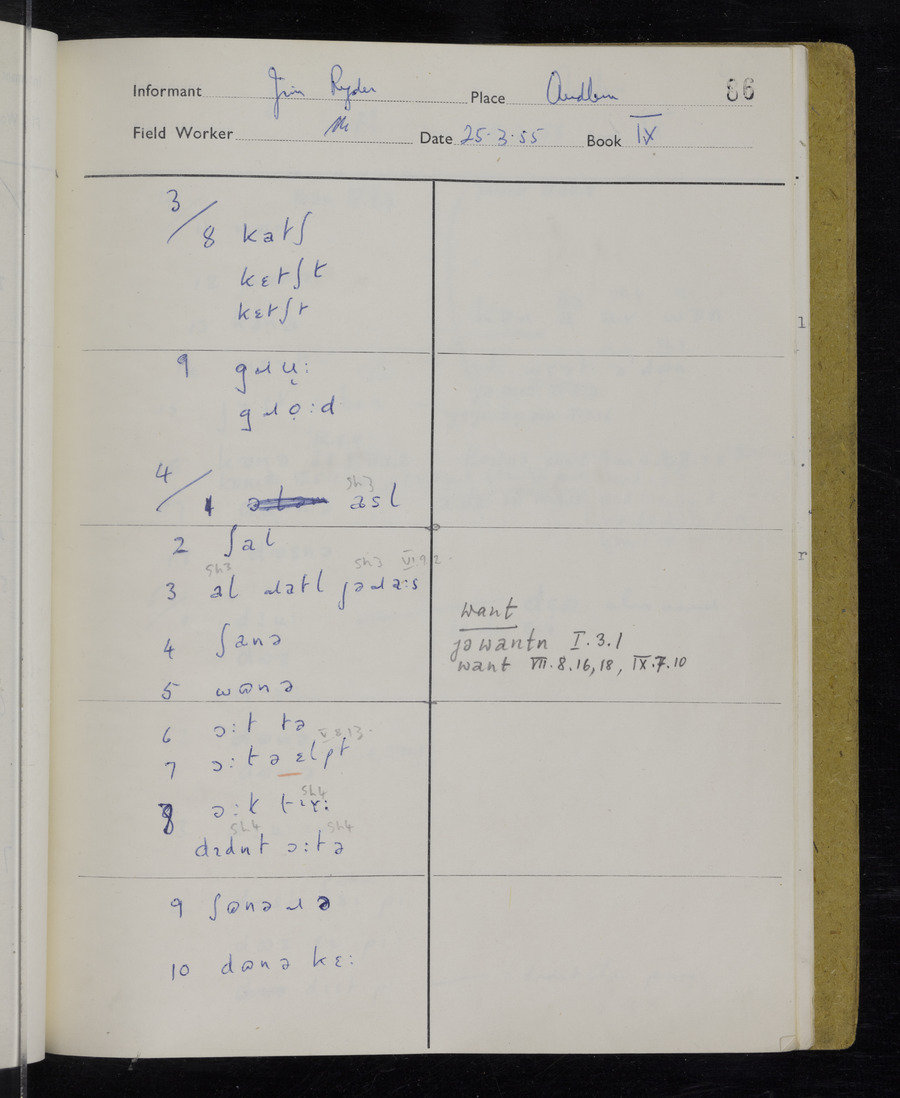 Informant Jim Ryder Place Audlem 86
Field Worker Date 25·3·55 Book IX
3/8 katʃ
kɛtʃt
kɛtʃt
9 gɹu̜:
gɹọ:d
4/1 asl Sh3
2 ʃal
3 al ɹatl jəɹa:s Sh3 Sh3 VI.9.2.
4 ʃanə
5 wɒnə
6 ɔ:t tə
7 ɔ:t ə ɛlpt V.8.13.
8 ɔ:k tɪɤ: Sh4
dɪdnt ɔ:tə Sh4 Sh4
9 ʃɒnə ɹə
10 dɒnə kɛ:
want
jəwantn I.3.1
want VIII.8.16,18, IX.7.10
l
r